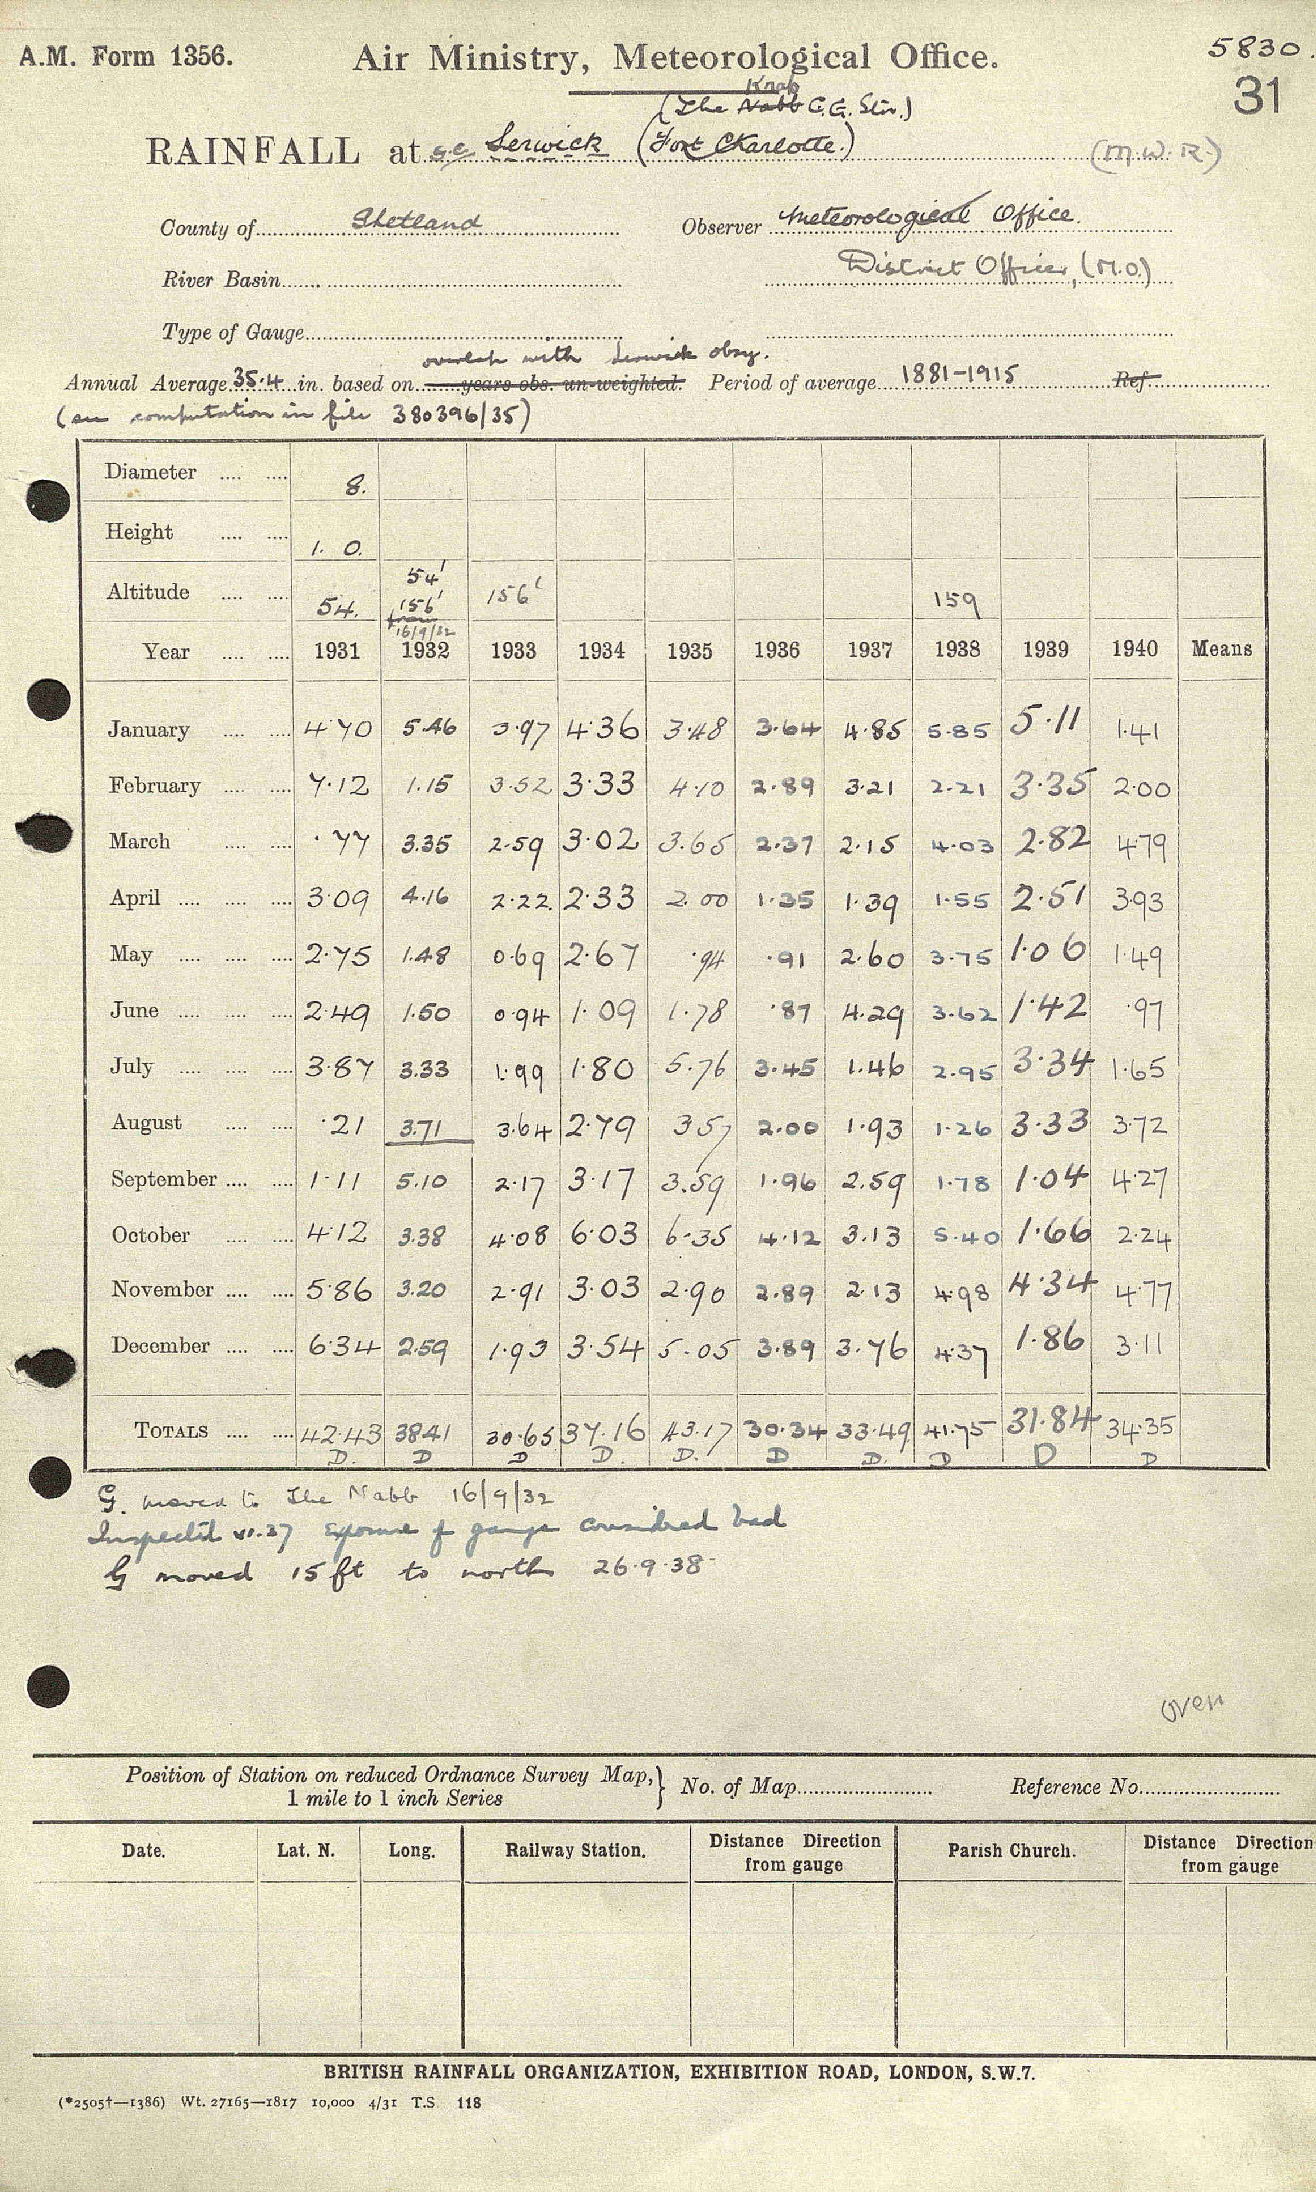 A.M. Form 1356.
Air Ministry, Meteorological Office.
5830.
31
Knab
(The Nabb C.G. Stn.)
RAINFALL at Lerwick (Fort Charlotte.) (M.W.R.)
County of Shetland Observer Meteorological Office.
River Basin District Officer, (M.O.)
Type of Gauge
overlap with Lerwick obsy.
Annual Average 35.4 in. based on years obs. un-weighted. Period of average 1881-1915 Ref
(see computation in file 380396/35)
Diameter 8.
Height 1. 0.
54'
Altitude 54. 156' 156' 159
from
16/9/32
Year 1931 1932 1933 1934 1935 1936 1937 1938 1939 1940 Means
January 4.70 5.46 3.97 4.36 3.48 3.64 4.85 5.85 5.11 1.41
February 7.12 1.15 3.52 3.33 4.10 2.89 3.21 2.21 3.35 2.00
March .77 3.35 2.59 3.02 3.65 2.37 2.15 4.03 2.82 4.79
April 3.09 4.16 2.22 2.33 2.00 1.35 1.39 1.55 2.51 3.93
May 2.75 1.48 0.69 2.67 .94 .91 2.60 3.75 1.06 1.49
June 2.49 1.50 0.94 1.09 1.78 .87 4.29 3.62 1.42 .97
July 3.87 3.33 1.99 1.80 5.76 3.45 1.46 2.95 3.34 1.65
August .21 3.71 3.64 2.79 3.57 2.00 1.93 1.26 3.33 3.72
September 1.11 5.10 2.17 3.17 3.59 1.96 2.59 1.78 1.04 4.27
October 4.12 3.38 4.08 6.03 6.35 4.12 3.13 5.40 1.66 2.24
November 5.86 3.20 2.91 3.03 2.90 2.89 2.13 4.98 4.34 4.77
December 6.34 2.59 1.93 3.54 5.05 3.89 3.76 4.37 1.86 3.11
TOTALS 42.43 38.41 30.65 37.16 43.17 30.34 33.49 41.75 31.84 34.35
D. D D D. D. D D. D D D
G. moved to The Nabb 16/9/32
Inspected VI.37 Exposure of gauge considered bad
G moved 15 ft to north 26.9.38
over
Position of Station on reduced Ordnance Survey Map, } No. of Map Reference No.
1 mile to 1 inch Series
Date. Lat. N. Long. Railway Station. Distance Direction Parish Church. Distance Direction
from gauge from gauge
BRITISH RAINFALL ORGANIZATION, EXHIBITION ROAD, LONDON, S.W.7.
(*2505†—1386) Wt. 27165—1817 10,000 4/31 T.S 118